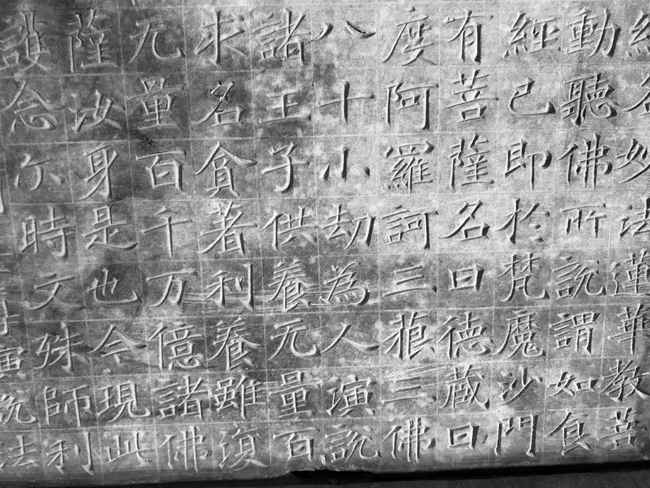 經名妙法蓮華教菩
動聽佛所說謂如食
經已即於梵魔沙門
有菩薩名曰德藏曰
度阿羅訶三藐三佛
八十小劫為人演說
諸王子供養无量百
求名貪著利養雖復
无量百千万億諸佛
薩汝身是也今現此
護念尒時文殊師利
演說法